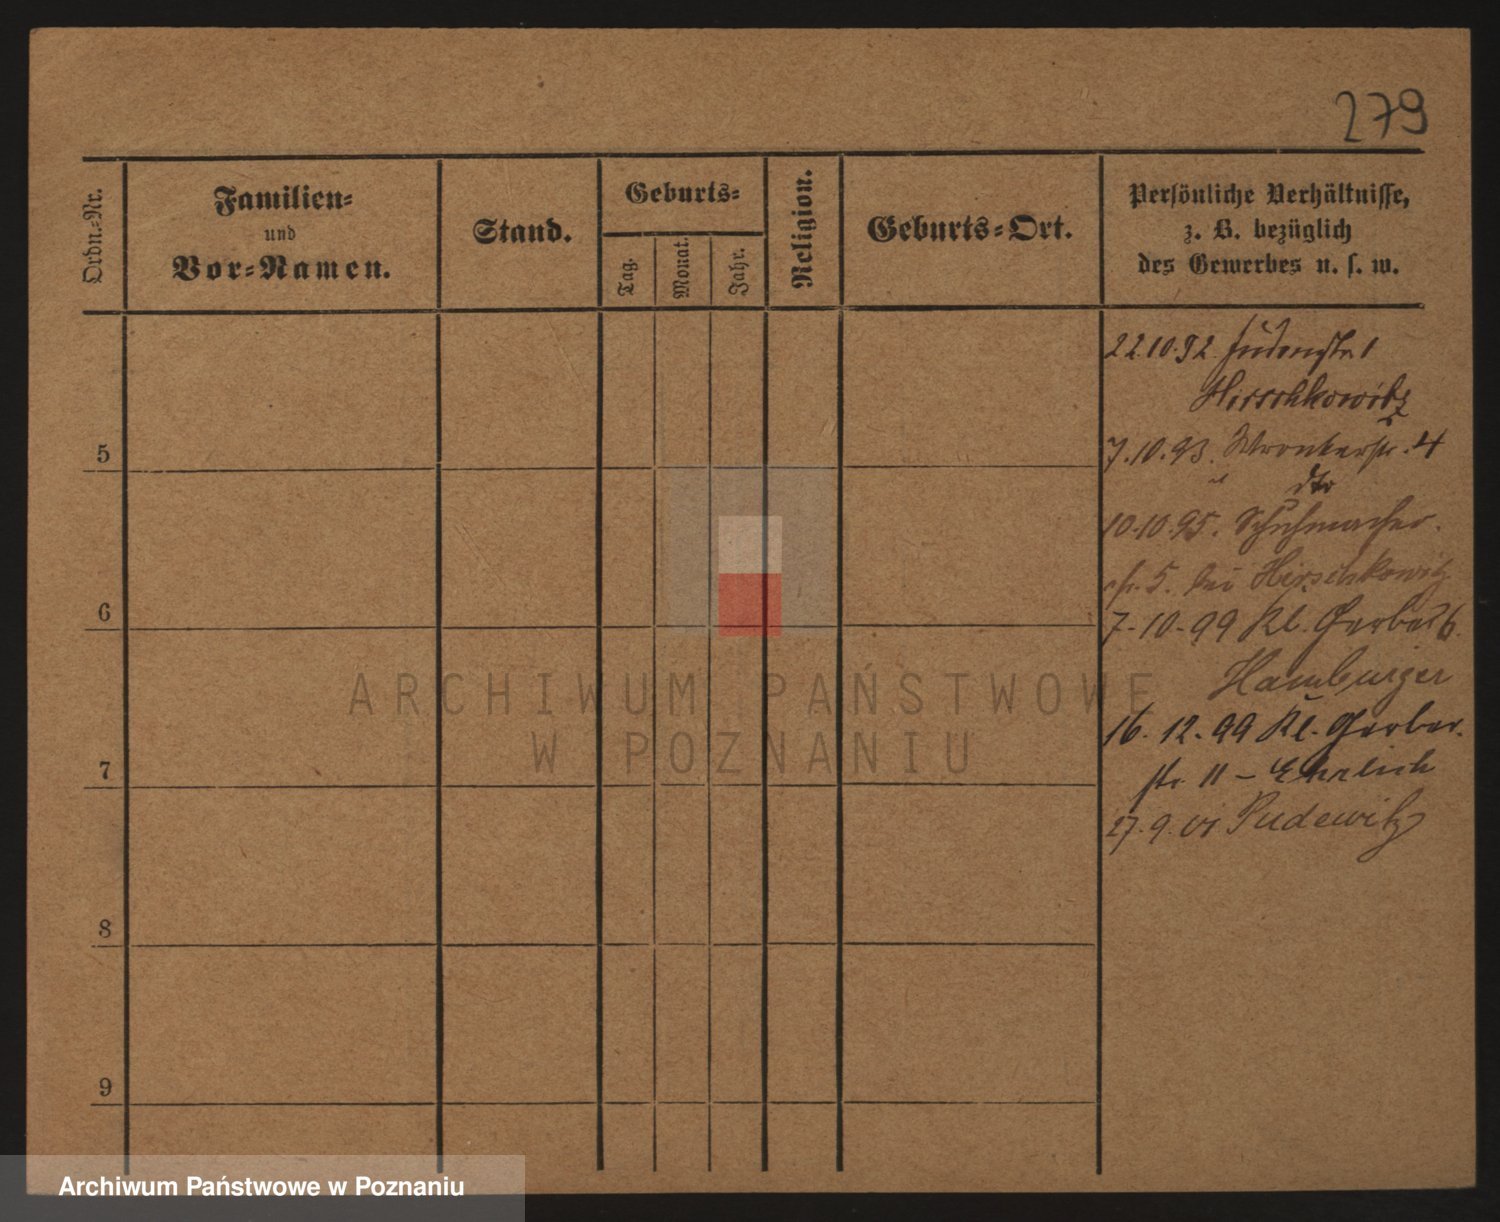 279
Ordn.-Nr.
Familien-
und
Vor-Namen.
Stand.
Geburts-
Tag.
Monat.
Jahr.
Religion.
Geburts-Ort.
Persönliche Verhältnisse,
z. B. bezüglich
des Gewerbes u. s. w.
22.10.92. Judenstr. 1
Hirschkowitz
5
7.10.93. Wronkerstr. 4
dto
10.10.95. Schuhmacher-
str. 5. bei Hirschkowitz
6
7-10-99 Kl. Gerber
Hamburger
16. 12. 99 Kl. Gerber-
7
str 11 – Ehrlich
27. 9. 01 Pudewitz
8
9
ARCHIWUM PAŃSTWOWE
W POZNANIU
Archiwum Państwowe w Poznaniu